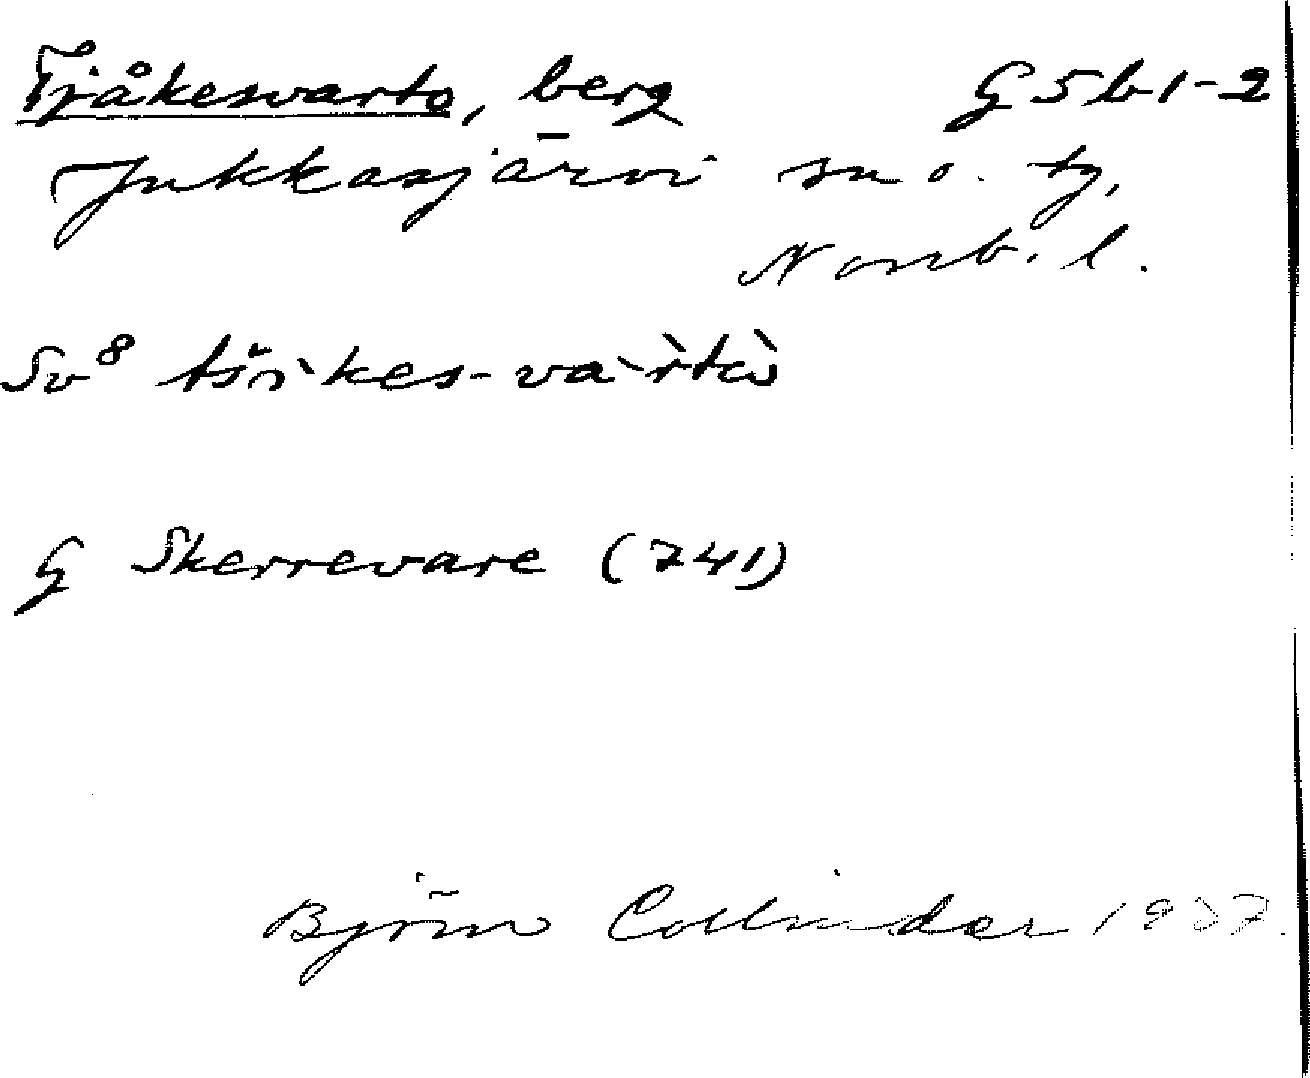 Tjåkesvarto, berg G5b1-2
Jukkasjärvi sn o. tg,
Norrb. l.
Sv⁸
G Skerrevare (741)
Björn Collinder 1937.